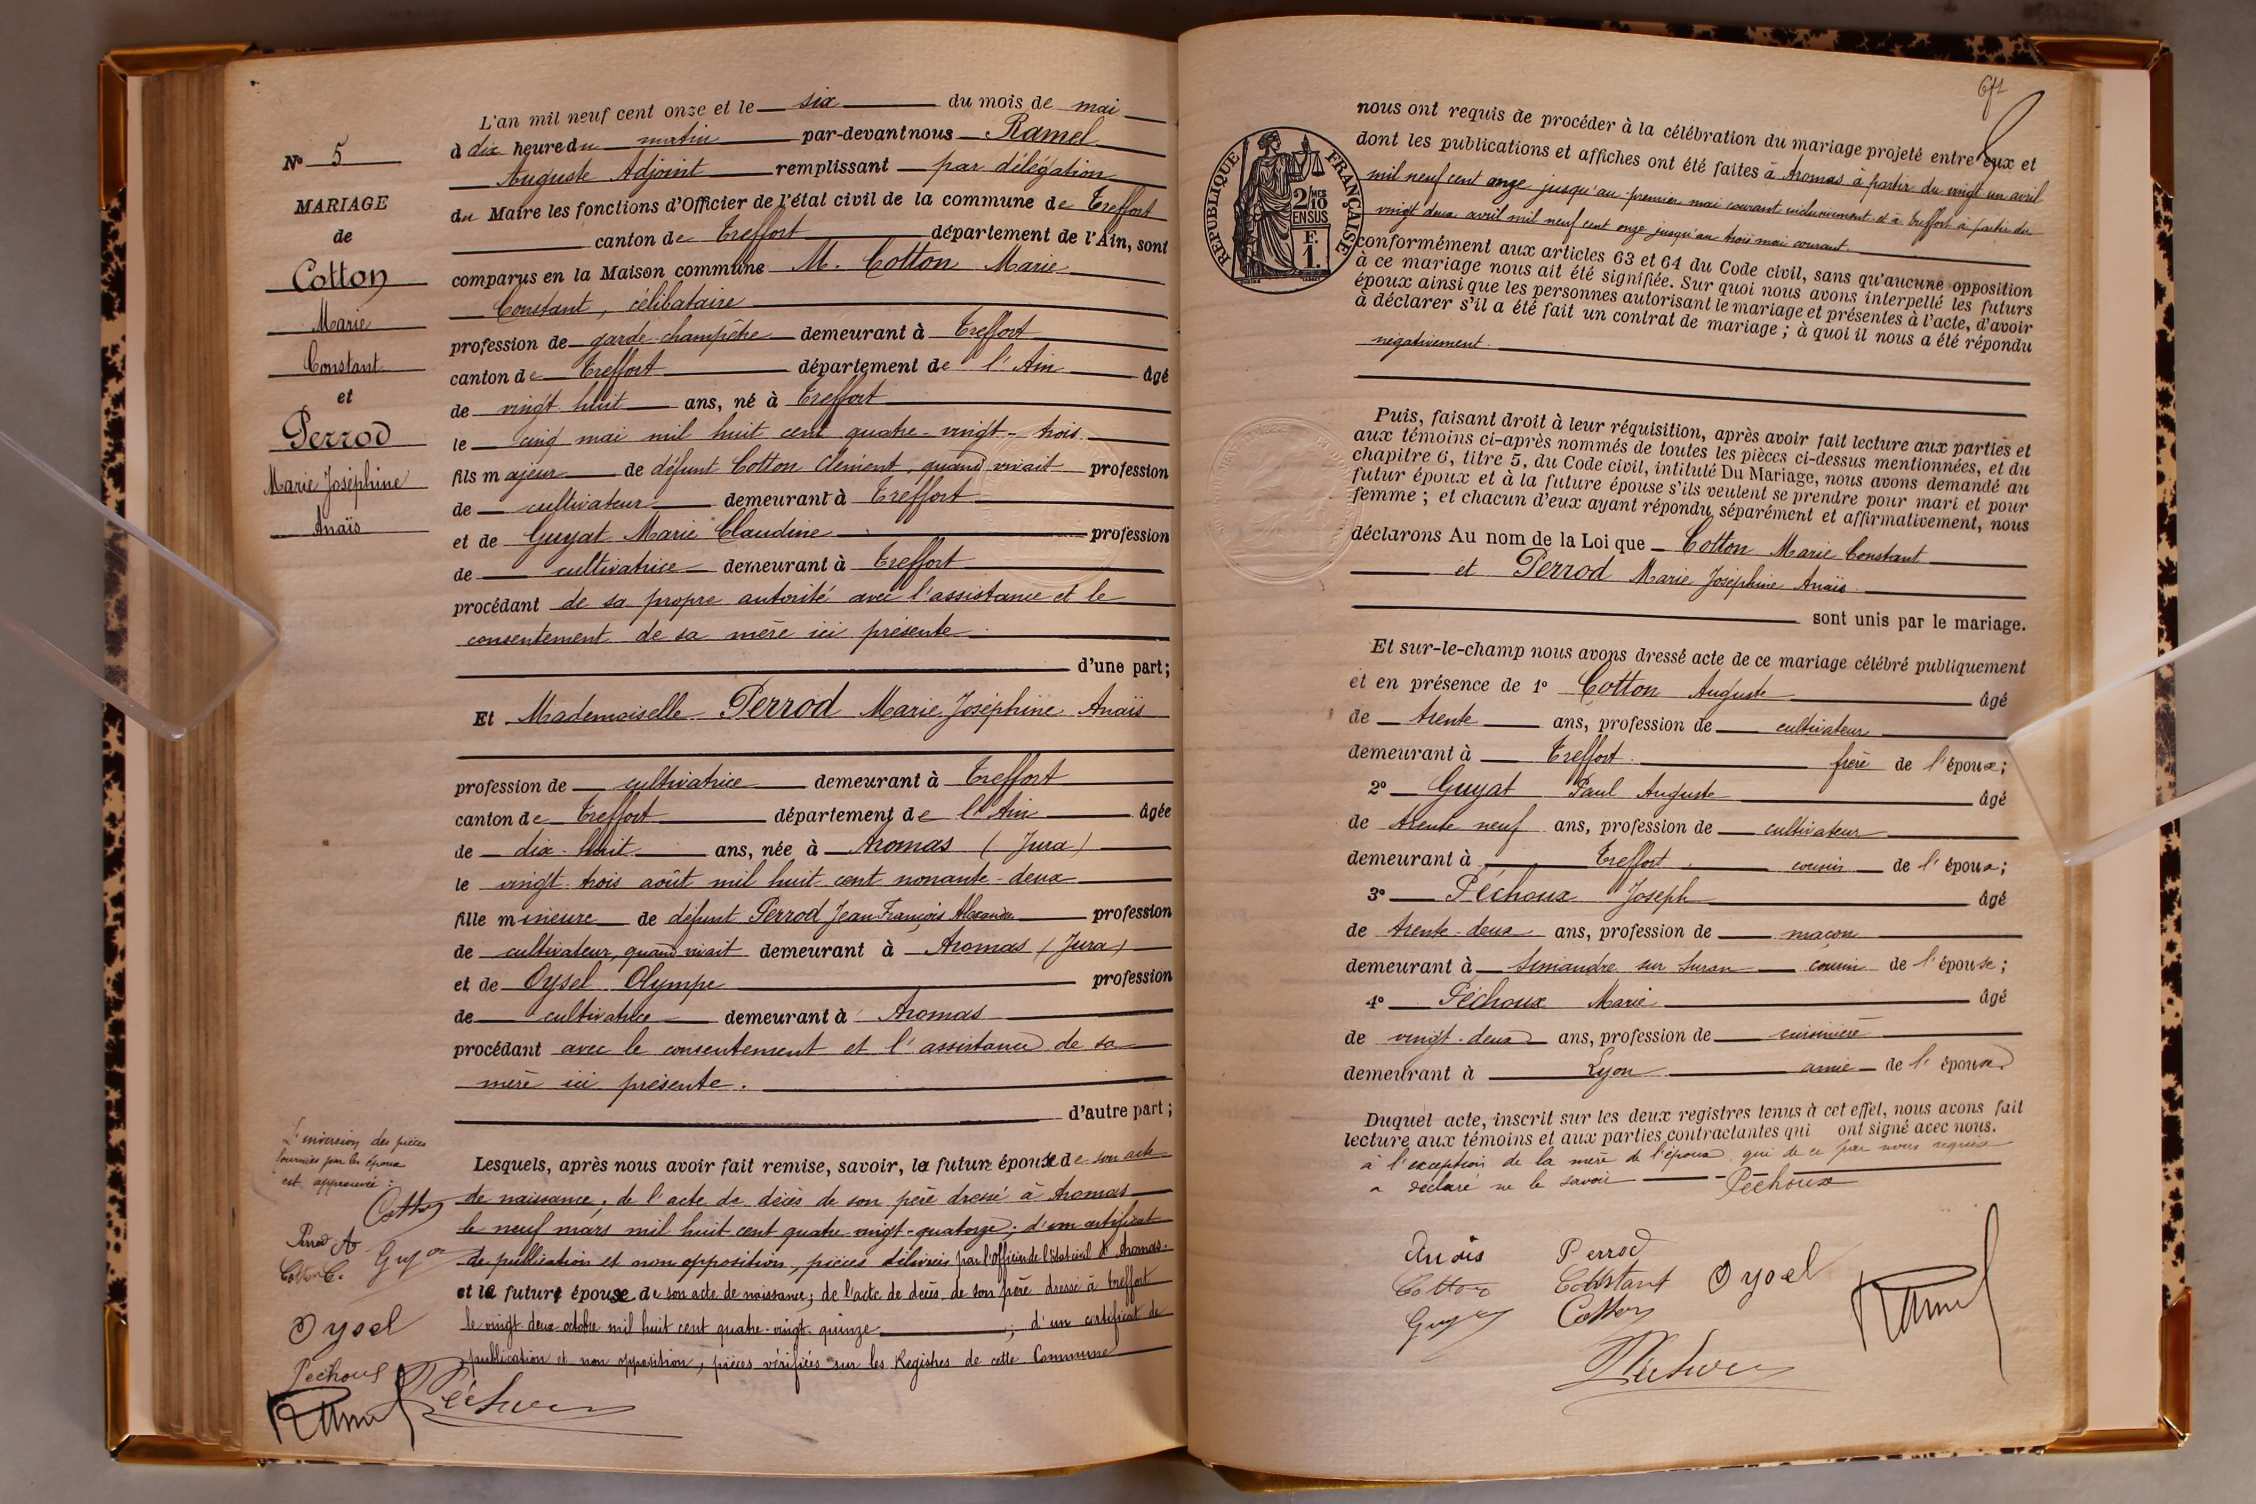 N° 5
MARIAGE
de
Cotton
Marie
Constant
et
Perrod
Marie Joséphine
Anaïs
L'an mil neuf cent onze et le six du mois de mai
à dix heure du matin par-devant nous Ramel
Auguste Adjoint remplissant par délégation
du Maire les fonctions d'Officier de l'état civil de la commune de Treffort
canton de Treffort département de l'Ain, sont
comparus en la Maison commune M. Cotton Marie
Constant, célibataire
profession de garde-champêtre demeurant à Treffort
canton de Treffort département de l'Ain âgé
de vingt huit ans, né à Treffort
le cinq mai mil huit cent quatre-vingt-trois
fils majeur de défunt Cotton Clément, quand vivait profession
de cultivateur demeurant à Treffort
et de Guyat Marie Claudine profession
de cultivatrice demeurant à Treffort
procédant de sa propre autorité avec l'assistance et le
consentement de sa mère ici présente
d'une part;
Et Mademoiselle Perrod Marie Joséphine Anaïs
profession de cultivatrice demeurant à Treffort
canton de Treffort département de l'Ain âgée
de dix-huit ans, née à Aromas (Jura)
le vingt-trois août mil huit cent nonante-deux
fille mineure de défunt Perrod Jean François Alexandre profession
de cultivateur, quand vivait demeurant à Aromas (Jura)
et de Oysel Olympe profession
de cultivatrice demeurant à Aromas
procédant avec le consentement et l'assistance de sa
mère ici présente.
d'autre part;
Lesquels, après nous avoir fait remise, savoir, la future épouse de son acte
de naissance, de l'acte de décès de son père dressé à Aromas
le neuf mars mil huit cent quatre-vingt-quatorze; d'un certificat
de publication et non opposition, pièces délivrées par l'officier de l'état civil d'Aromas.
et le futur époux de son acte de naissance; de l'acte de décès de son père dressé à Treffort
le vingt-deux octobre mil huit cent quatre-vingt-quinze; d'un certificat de
publication et non opposition, pièces vérifiées sur les Registres de cette Commune
L'inversion des pièces
fournies par les époux
est approuvée:
Cotton
Perrod A
Cotton C.
Oysel
Péchoux
Ramel
Péchoux
RÉPUBLIQUE FRANÇAISE
2/10
EN SUS
F.
1.
nous ont requis de procéder à la célébration du mariage projeté entre eux et
dont les publications et affiches ont été faites à Aromas à partir du vingt-un avril
mil neuf cent onze jusqu'au premier mai courant inclusivement et à Treffort à partir du
vingt deux avril mil neuf cent onze jusqu'au trois mai courant.
conformément aux articles 63 et 64 du Code civil, sans qu'aucune opposition
à ce mariage nous ait été signifiée. Sur quoi nous avons interpellé les futurs
époux ainsi que les personnes autorisant le mariage et présentes à l'acte, d'avoir
à déclarer s'il a été fait un contrat de mariage; à quoi il nous a été répondu
négativement.
Puis, faisant droit à leur réquisition, après avoir fait lecture aux parties et
aux témoins ci-après nommés de toutes les pièces ci-dessus mentionnées, et du
chapitre 6, titre 5, du Code civil, intitulé Du Mariage, nous avons demandé au
futur époux et à la future épouse s'ils veulent se prendre pour mari et pour
femme; et chacun d'eux ayant répondu séparément et affirmativement, nous
déclarons Au nom de la Loi que Cotton Marie Constant
et Perrod Marie Joséphine Anaïs
sont unis par le mariage.
Et sur-le-champ nous avons dressé acte de ce mariage célébré publiquement
et en présence de 1° Cotton Auguste âgé
de trente ans, profession de cultivateur
demeurant à Treffort frère de l'époux;
2° Guyat Paul Auguste âgé
de trente neuf ans, profession de cultivateur
demeurant à Treffort cousin de l'époux;
3° Péchoux Joseph âgé
de trente-deux ans, profession de maçon
demeurant à Simandre sur Suran cousin de l'épouse;
4° Péchoux Marie âgé
de vingt-deux ans, profession de cuisinière
demeurant à Lyon amie de l'épouse
Duquel acte, inscrit sur les deux registres tenus à cet effet, nous avons fait
lecture aux témoins et aux parties contractantes qui ont signé avec nous.
à l'exception de la mère de l'époux qui de ce par nous requise
a déclaré ne le savoir Péchoux
Anaïs Perrod
Cotton Constant Oysel
Cotton
Ramel
Péchoux